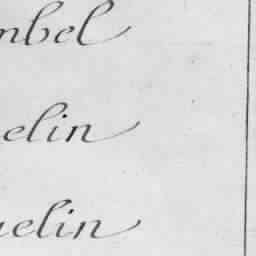 mbel
elin
uelin